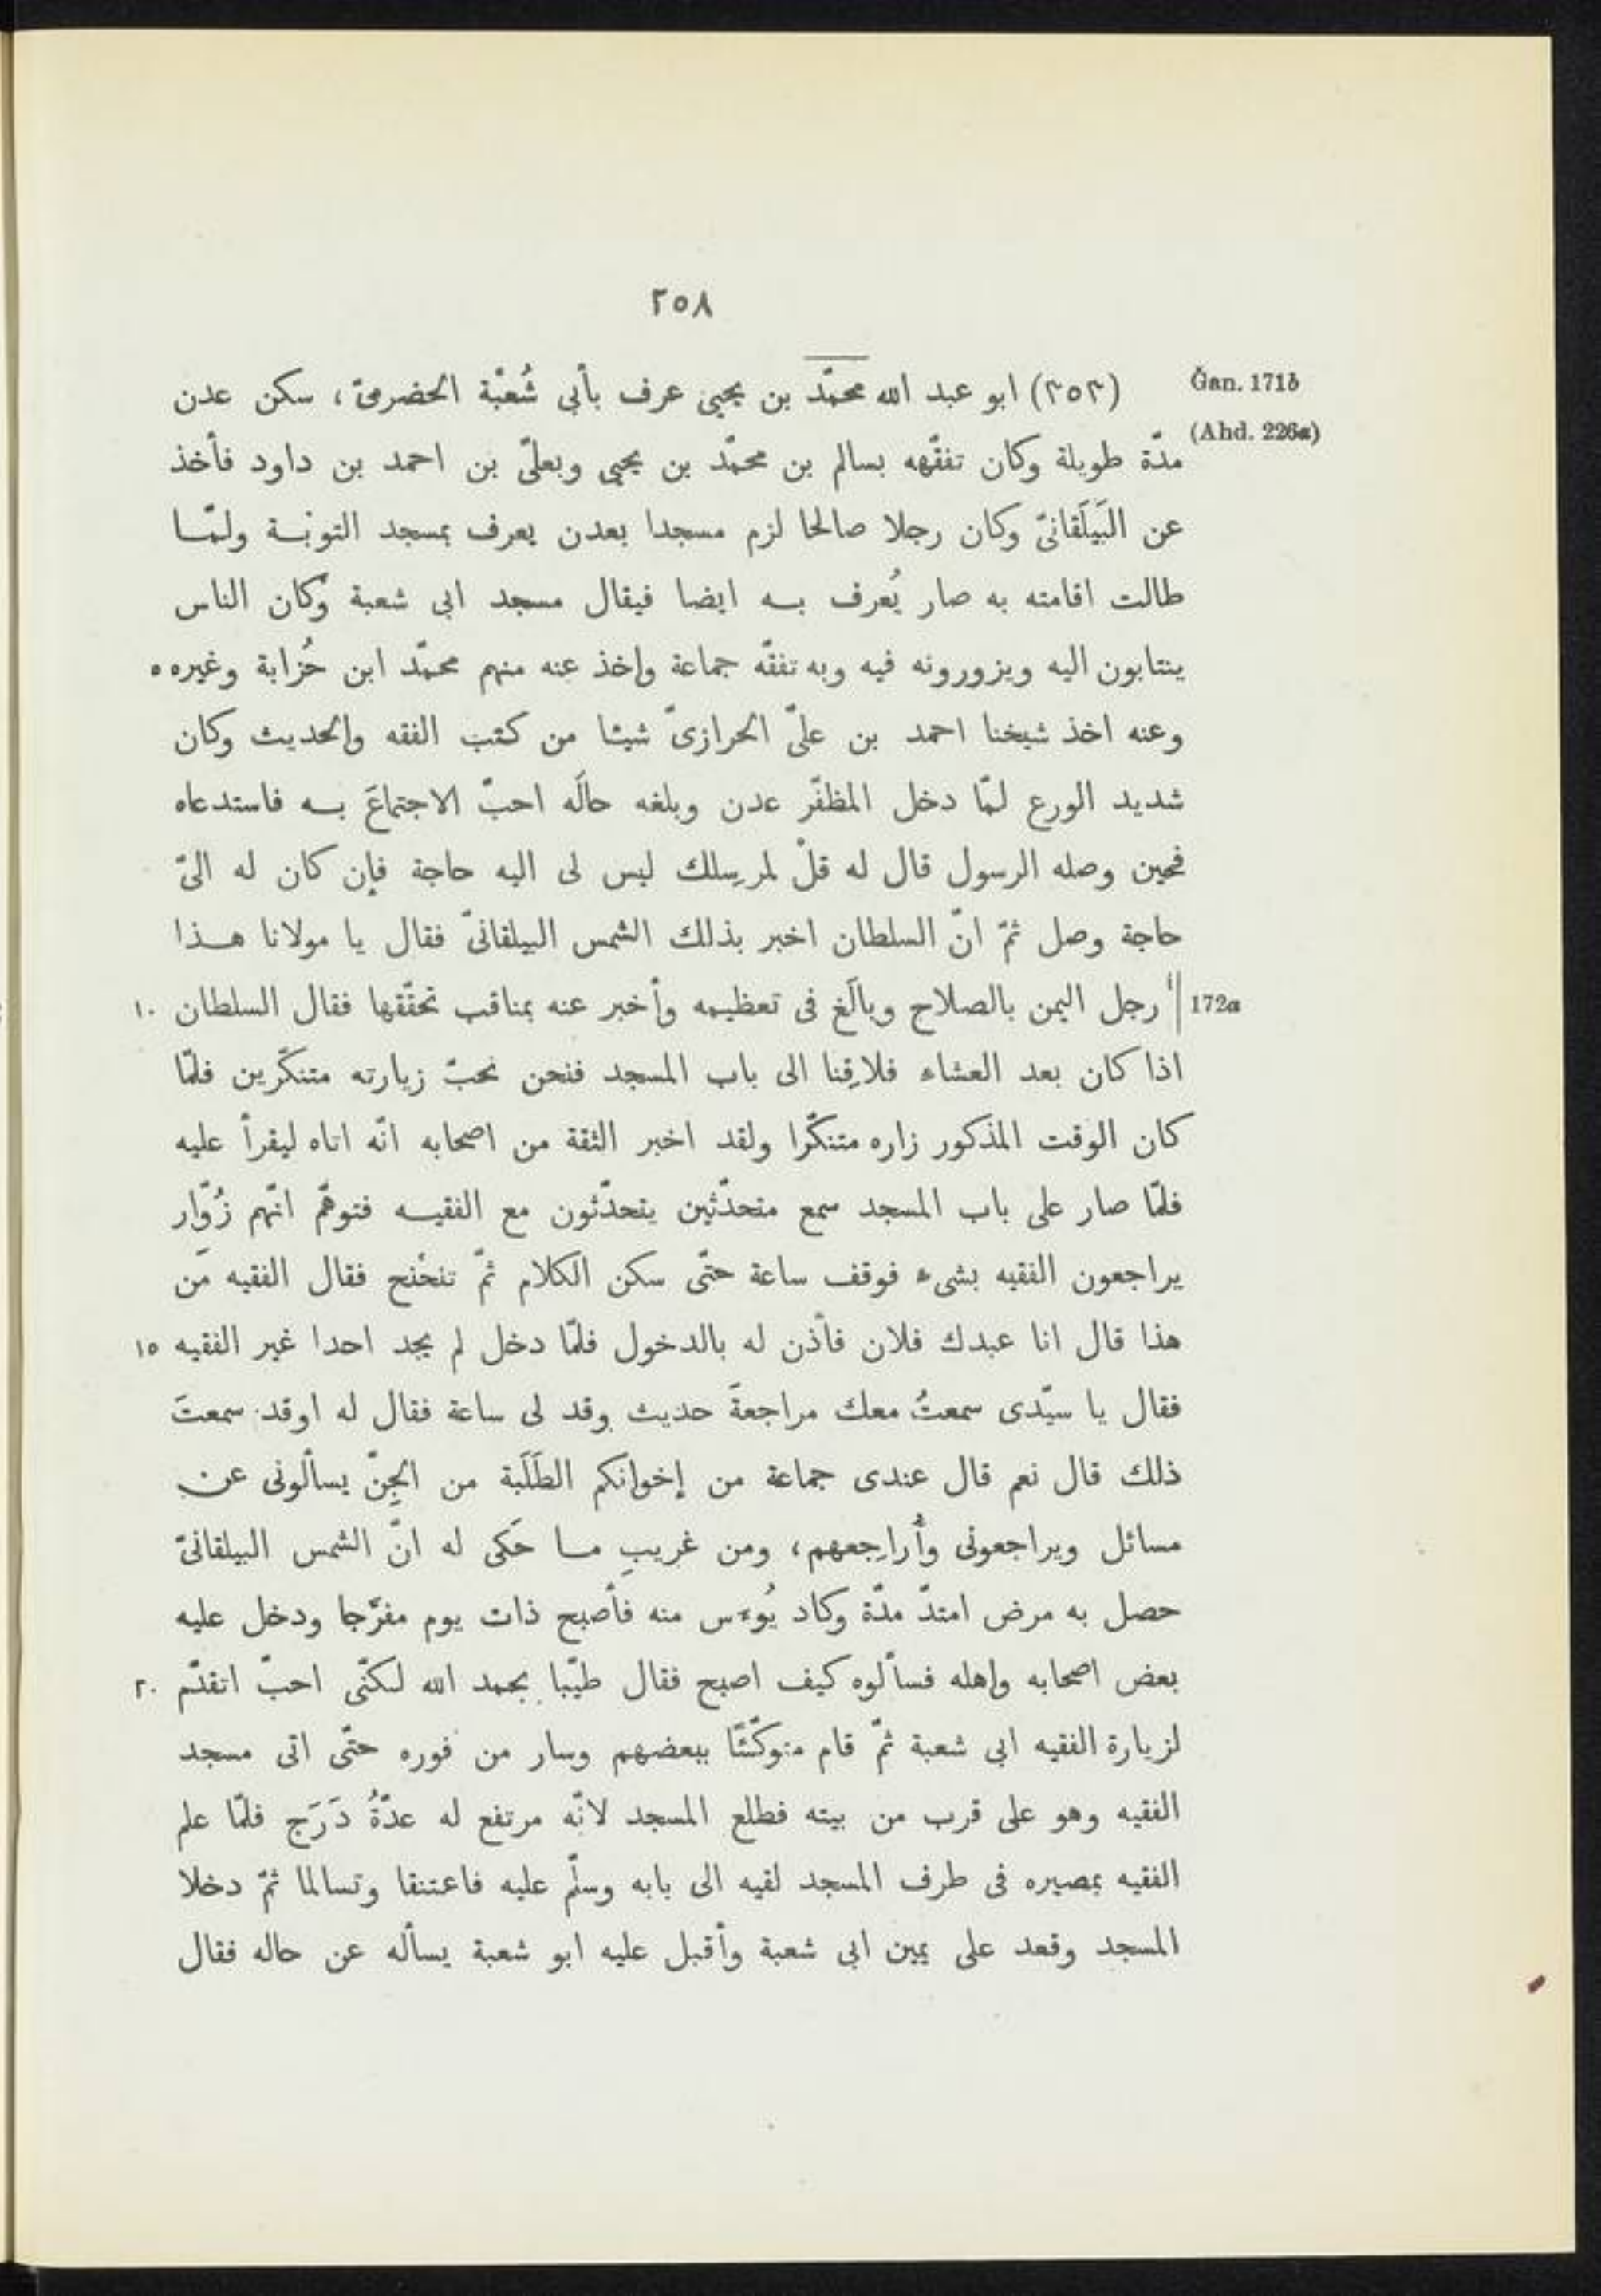 ٢٥٨
Ğan. 171b
(٢٥٣) ابو عبد الله محمّد بن يحيى عرف بأبى شُعْبْة الحضرمىّ، سكن عدن
(Ahd. 226a)
مدّة طويلة وكان تفقّهه بسالم بن محمّد بن يحيى وبعلىّ بن احمد بن داود فأخذ
عن البَيلَقانىّ وكان رجلا صالحا لزم مسجدا بعدن يعرف بمسجد التوبْـة ولمّـا
طالت اقامته به صار يُعرف بـه ايضا فيقال مسجد ابى شعبة وكان الناس
ينتابون اليه ويزورونه فيه وبه تفقّه جماعة واخذ عنه منهم محمّد ابن حُزابة وغيره ٥
وعنه اخذ شيخنا احمد بن علىّ الحرازىّ شيئا من كتب الفقه والحديث وكان
شديد الورع لمّا دخل المظفّر عدن وبلغه حالُه احبّ الاجتماعَ بـه فاستدعاه
فحين وصله الرسول قال له قلْ لمرسِلك ليس لى اليه حاجة فإن كان له الىّ
حاجة وصل ثمّ انّ السلطان اخبر بذلك الشمس البيلقانىّ فقال يا مولانا هـذا
172a || رجل اليمن بالصلاح وبالَغ فى تعظيمه وأخبر عنه بمناقب تحقّقها فقال السلطان ١٠
اذا كان بعد العشاء فلاقِنا الى باب المسجد فنحن نحبّ زيارته متنكّرين فلمّا
كان الوقت المذكور زاره متنكّرا ولقد اخبر الثقة من اصحابه انّه اتاه ليقرأ عليه
فلمّا صار على باب المسجد سمع متحدّثين يتحدّثون مع الفقيـه فتوهّم انّهم زُوّار
يراجعون الفقيه بشىء فوقف ساعة حتّى سكن الكلام ثمّ تنحْنح فقال الفقيه مَن
هذا قال انا عبدك فلان فأذن له بالدخول فلمّا دخل لم يجد احدا غير الفقيه ١٥
فقال يا سيّدى سمعتُ معك مراجعةَ حديث وقد لى ساعة فقال له اوقد سمعتَ
ذلك قال نعم قال عندى جماعة من إخوانكم الطَلَبة من الجِنّ يسألونى عن
مسائل ويراجعونى وأُراجعهم، ومن غريبِ مـا حَكى له انّ الشمس البيلقانىّ
حصل به مرض امتدّ مدّة وكاد يُوءس منه فأصبح ذات يوم مفرَّجا ودخل عليه
بعض اصحابه واهله فسألوه كيف اصبح فقال طيّبا بحمد الله لكنّى احبّ اتقدّم ٢٠
لزيارة الفقيه ابى شعبة ثمّ قام متوكّئًا ببعضهم وسار من فوره حتّى اتى مسجد
الفقيه وهو على قرب من بيته فطلع المسجد لانّه مرتفع له عدّةُ دَرَج فلمّا علم
الفقيه بمصيره فى طرف المسجد لقيه الى بابه وسلّم عليه فاعتنقا وتسالما ثمّ دخلا
المسجد وقعد على يمين ابى شعبة وأقبل عليه ابو شعبة يسأله عن حاله فقال